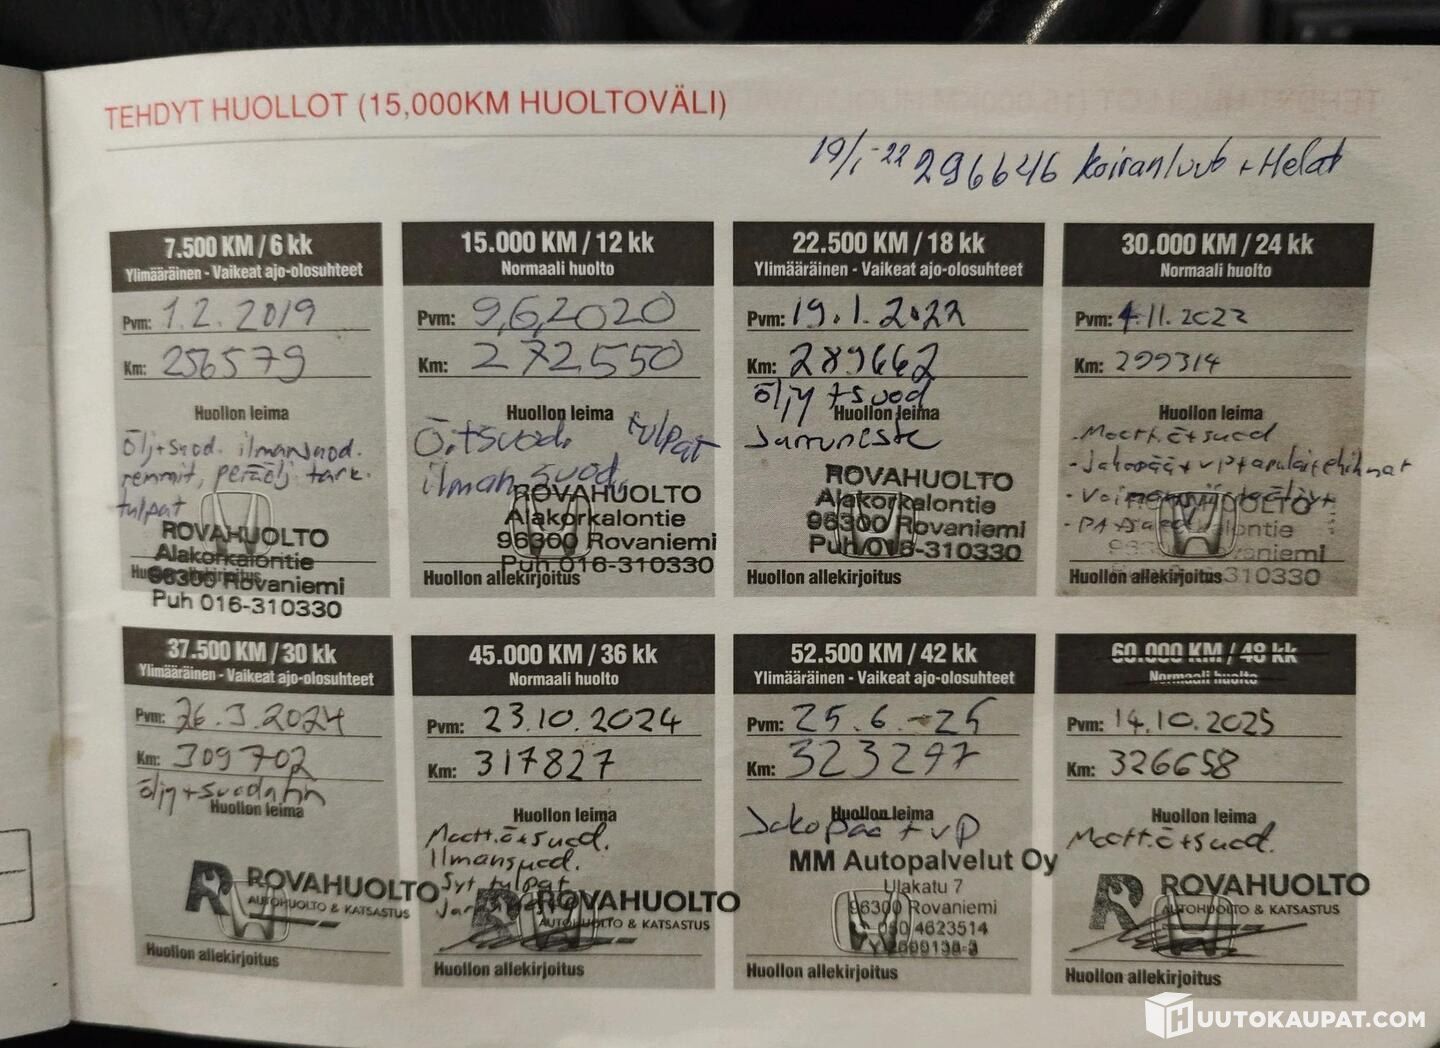 TEHDYT HUOLLOT (15,000KM HUOLTOVÄLI)
19/1-22 296646 Koiranluut + Helat
7.500 KM / 6 kk
Ylimääräinen - Vaikeat ajo-olosuhteet
Pvm: 1.2.2019
Km: 256579
Huollon leima
Ölj+suod. ilmansuod.
remmit, peräölj. tark.
tulpat
ROVAHUOLTO
Alakorkalontie
96300 Rovaniemi
Puh 016-310330
15.000 KM / 12 kk
Normaali huolto
Pvm: 9.6.2020
Km: 272550
Huollon leima
Ö+suod. tulpat
ilmansuod.
ROVAHUOLTO
Alakorkalontie
96300 Rovaniemi
Puh 016-310330
Huollon allekirjoitus
22.500 KM / 18 kk
Ylimääräinen - Vaikeat ajo-olosuhteet
Pvm: 19.1.2022
Km: 289662
öljy +suod
Huollon leima
Jarruneste
ROVAHUOLTO
Alakorkalontie
96300 Rovaniemi
Puh 016-310330
Huollon allekirjoitus
30.000 KM / 24 kk
Normaali huolto
Pvm: 4.11.2022
Km: 299314
Huollon leima
- Moott.ö+suod
- Jakopää + VP +
Huollon allekirjoitus 310330
37.500 KM / 30 kk
Ylimääräinen - Vaikeat ajo-olosuhteet
Pvm: 26.3.2024
Km: 309702
Öljy+suodatin
Huollon leima
ROVAHUOLTO
AUTOHUOLTO & KATSASTUS
Huollon allekirjoitus
45.000 KM / 36 kk
Normaali huolto
Pvm: 23.10.2024
Km: 317827
Huollon leima
Moott.ö+suod.
Ilmansuod.
Syt tulpat
ROVAHUOLTO
AUTOHUOLTO & KATSASTUS
Huollon allekirjoitus
52.500 KM / 42 kk
Ylimääräinen - Vaikeat ajo-olosuhteet
Pvm: 25.6.-25
Km: 323297
Huollon leima
Jakopää + VP
MM Autopalvelut Oy
Ulakatu 7
96300 Rovaniemi
050 4623514
Huollon allekirjoitus
60.000 KM / 48 kk
Normaali huolto
Pvm: 14.10.2025
Km: 326658
Huollon leima
Moott.ö+suod.
ROVAHUOLTO
AUTOHUOLTO & KATSASTUS
Huollon allekirjoitus
HUUTOKAUPAT.COM